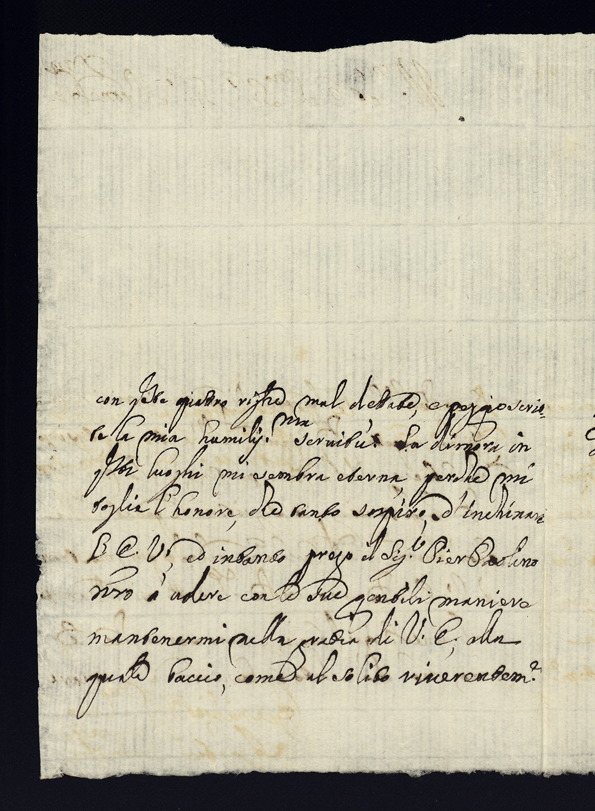 con q.ste quattro righe mal dettate, e peggio scrit-
te la mia humiliss.ma servitù. La dimora in
q.sti luoghi mi sembra eterna, perche mi
toglie l'honore, che tanto sospiro, d'Inchinare
V. E., ed intanto prego il Sig.r Pier Paolino
nro à volere con le sue gentili maniere
mantenermi nella grazia di V. E., alla
quale baccio, come al solito riverentem.te